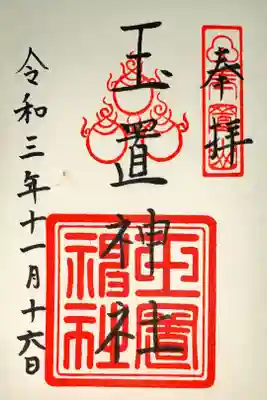 奉拝
玉置神社
玉置
神社
令和三年十一月十六日